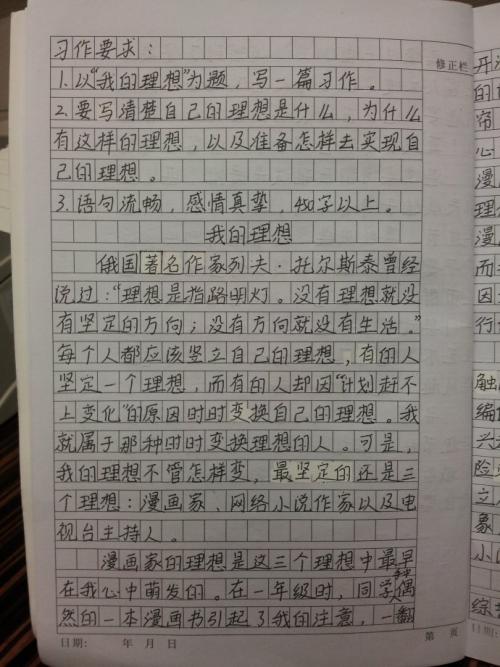 习作要求：
修正栏
1.以“我的理想”为题，写一篇习作。
2.要写清楚自己的理想是什么，为什么
有这样的理想，以及准备怎样去实现自
己的理想。
3.语句流畅，感情真挚，450字以上。
我的理想
俄国著名作家列夫·托尔斯泰曾经
说过：“理想是指路明灯。没有理想就没
有坚定的方向；没有方向就没有生活。”
每个人都应该竖立自己的理想，有的人
坚定一个理想，而有的人却因“计划赶不
上变化”的原因时时变换自己的理想。我
就属于那种时时变换理想的人。可是，
我的理想不管怎样变，最坚定的还是三
个理想：漫画家、网络小说作家以及电
视台主持人。
漫画家的理想是这三个理想中最早
在我心中萌发的。在一年级时，同学偶
然的一本漫画书引起了我的注意，一翻
日期： 年 月 日
第 页